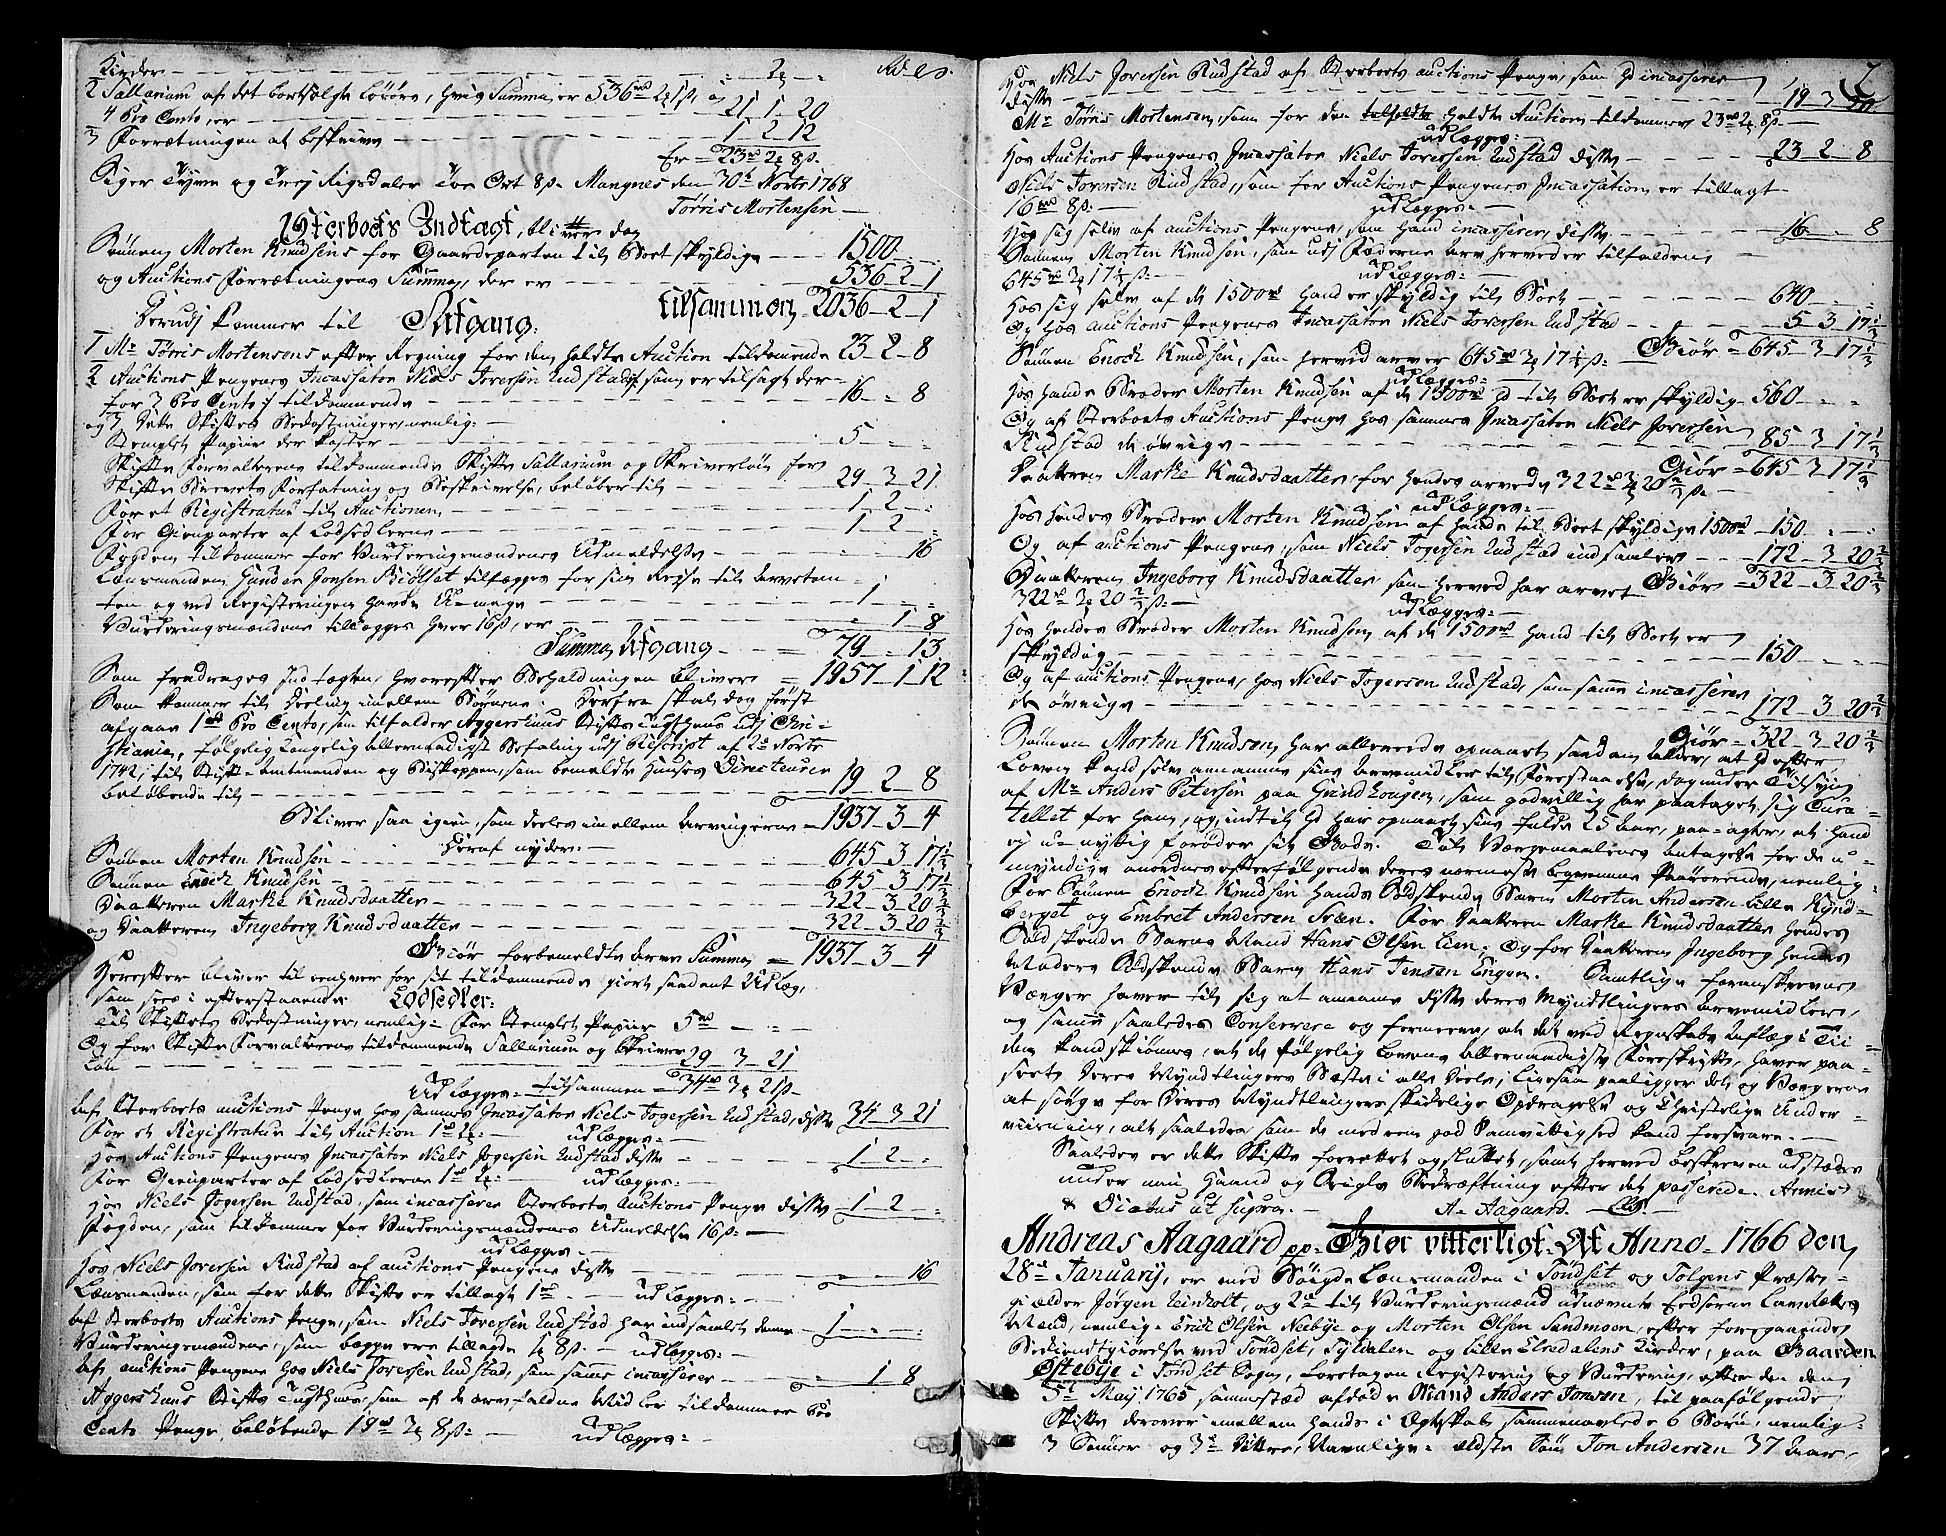 Kirder — — — 2 — Rd. ℓ s.
2 Sallarium af det bortsolgte løsøre, hvis Summa er 536 rd 2 ℓ 1 s, a
4 Pro Cento, er — — — 21 1 20
3 Forretningen at beskrive — — — 1 2 12
Er = 23 rd 2 ℓ 8 s.
Siger Tyve og Trej Rigsdaler Toe Ort 8 s. Mangnes den 30te Novbr 1768
Törris Mortensen —
Sterboets Indtægt, bliver da
Sønnen Morten Knudsens for Gaardeparten til Boet skyldige — — 1500 - -
og Auctions Forretningens Summa, der er — — 536 - 2 - 1
tilsammen 2036 - 2 - 1
Derudj kommer til Afgang:
1 Mr Törris Mortensens efter Regning for den holdte Auction tilkommende 23 - 2 - 8
2 Auctions Pengenes Incassator Niels Iversen Rudstad, som er tilsagt der-
for 3 Pro Cento, tilkommende — — 16 - = 8
og 3 dette Skiftes Bekostninger, nemlig: —
Stemplet Papiir der koster — — 5 - = -
Skifte Forvalterens tilkommende Skifte Sallarium og Skriverløn for
Skifte Brevets Forfatning og Beskrivelse, beløber til — — 29 - 3 - 21
For et Registratur til Auctionen — — 1 - 2 - =
For Gienparter af Lodsedlerne — — 1 - 2 - =
Fogden tilkommer for Vurderingsmændenes Udmeldelse — — = - = - 16
Lensmanden Gunder Jonsen Biölset tillægges for sin Reyse til Arvetom-
ten og ved Registeringen havde U-mage — — 1 - = - =
Vurderingsmændene tillægges hver 16 s, er — — = - 1 - 8
Summa Afgang — — = 79 - = - 13
Som fradrages Indtægten, hvorefter Beholdningen bliver = 1957 - 1 - 12
Som kommer til Deeling imellem Børnene. Derfra skal dog først
afgaae 1 rd Pro Cento, som tilfalder Aggershuus Stifts Tugthuus udj Chri-
stiania, følgelig Kongelig allernaadigst Befaling udj Rescript af 2de Novbr
1742, til Stift-Amtmanden og Biskoppen, som bemeldte Huuses Directeurer
beløbende til — — 19 - 2 - 8
Bliver saa igien, som deeles imellem Arvingerne = 1937 - 3 - 4
Heraf nyder: —
Sønnen Morten Knudsen — — 645 - 3 - 17 1/3
Sønnen Enoch Knudsen — — 645 - 3 - 17 1/3
Daatteren Marthe Knudsdaatter — — 322 - 3 - 20 2/3
og Daatteren Ingeborg Knudsdaatter — — 322 - 3 - 20 2/3
Giør forbemeldte Arve Summa = 1937 - 3 - 4
Herefter bliver til eenhver for sit tilkommende giort saadant Udlæg,
som sees i efterstaaende Lodsedler:
Til Skiftets Bekostninger, nemlig = For Stemplet Papiir 5 rd - = -
Og for Skifte Forvalterens tilkommende Sallarium og Skriver
Løn — — 29 - 3 - 21
tilsammen = 34 rd 3 ℓ 21 s. —
Udlægges: —
Af Sterboets auctions Penge hos sammes Incassator Niels Iversen Rudstad, disse 34 - 3 - 21
For et Registratur til Auction 1 rd 2 ℓ: — udlægges: —
Hos Auctions Pengenes Incassator Niels Iversen Rudstad disse — — 1 - 2 - =
For Gienparter af Lodsedlerne 1 rd 2 ℓ: — udlægges: —
Hos Niels Iversen Rudstad, som incasserer Sterboets Auctions Penge disse 1 - 2 - =
Fogden, som tilkommer for Vurderingsmændenes Udmeldelse 16 s: —
udlægges: —
Hos Niels Iversen Rudstad af auctions Pengene disse — — = - = - 16
Lensmanden, som for dette Skifte er tillagt 1 rd. — udlægges: —
Af Sterboets Auctions Penge, som Niels Iversen Rudstad har indsamlet denne 1 - = - =
Vurderingsmændene, som begge ere tillagde 1 ℓ 8 s. — udlægges: —
Af auctions Pengene hos Niels Iversen Rudstad, som samme incasserer — — = - 1 - 8
Aggershuus Stifts Tugthuus, som af de arvefaldne Midler tilkommer Pro
Cento Penge, beløbende 19 rd 2 ℓ 8 s. — udlægges: —
7
Hos Niels Iversen Rudstad af Sterboets auctions Penge, som hand incasserer
disse — — 19 - 3 - 20
Mr Törris Mortensen, som for den holdte Auction tilkommer 23 rd 2 ℓ 8 s. —
udlægges: —
Hos Auctions Pengenes Incassator Niels Iversen Rudstad disse — — 23 - 2 - 8
Niels Iversen Rudstad, som for Auctions Pengenes Incassation er tillagt
16 rd 8 s. — udlægges: —
Hos sig selv af auctions Pengene, som hand incasserer, disse — — 16 - = 8
Sønnen Morten Knudsen, som udj Fæderne Arv herved er tilfalden,
645 rd 3 ℓ 17 1/3 s: — udlægges: —
Hos sig selv af de 1500 rd hand er skyldig til Boet — — 640 - = - =
Og hos auctions Pengenes Incassator Niels Iversen Rudstad — — 5 - 3 - 17 1/3
Giør = 645 - 3 - 17 1/3
Sønnen Enoch Knudsen, som herved arver 645 rd 3 ℓ 17 1/3 s: —
udlægges: —
Hos hands Broder Morten Knudsen af de 1500 rd hd til Boet er skyldig - 560 - = - =
Og af Sterboets Auctions Penge hos sammes Incassator Niels Iversen
Rudstad de øvrige — — 85 - 3 - 17 1/3
Giør = 645 - 3 - 17 1/3
Daatteren Marthe Knudsdaatter, for hendes arvede 322 rd 3 ℓ 20 2/3 s: —
udlægges: —
Hos hendes Broder Morten Knudsen af hands til Boet skyldige 1500 rd - 150 - = - =
Og af auctions Pengene, som Niels Iversen Rudstad indsamler — — 172 - 3 - 20 2/3
Giør = 322 - 3 - 20 2/3
Daatteren Ingeborg Knudsdaatter som herved har arvet
322 rd 3 ℓ 20 2/3 s: — udlægges: —
Hos hendes Broder Morten Knudsen af de 1500 rd hand til Boet er
skyldig — — 150 - = - =
Og af auctions Pengene, hos Niels Iversen Rudstad, som samme incasserer
de øvrige — — 172 - 3 - 20 2/3
Giør = 322 - 3 - 20 2/3
Sønnen Morten Knudsen, har allereede opnaaet saadan Alder, at hd efter
Loven kand selv annamme sine Arvemidler til Forestaaelse, dog under Tilsyn
af Mr Anders Petersen paa Grindhougen, som godvillig har paataget sig Cura-
tellet for ham, og, indtil hd har opnaaet sine fulde 25 Aar, paa-agter, at hand
ej u-nyttig forøder sit Gods. Til Værgemaalenes Antagelse for de u-
myndige anordnes efterfølgende deres nærmeste beqvemme Paarørende, nemlig =
For Sønnen Enoch Knudsen hands Sødskende Barn Morten Andersen Lille Kynd-
berget og Embret Andersen Træen. For Daatteren Marthe Knudsdaatter hendes
Sødskende Barns Mand Hans Olsen Lien; Og for Daatteren Ingeborg hendes
Moders Sødskende Barn Hans Jensen Engen. Samtlige foranskrevne
Værger haver til sig at annamme disse deres Myndtlingers Arvemidler,
og samme saaledes Conservere og formeere, at det ved Regnskabs Aflæg i Ti-
den kand skiønnes, at de følgelig Lovens Allernaadigste Foreskrifter, haver paa-
seet deres Myndtlingers Beste i alle Deele; Ligesaa paaligger det og Værgerne
at sørge for deres Myndtlingers skikkelige Opdragelse og Christelige Under-
viisning, alt saaledes som de med een god Samvittighed kand forsvare. —
Saaledes er dette Skifte forrettet og sluttet, samt herved beskreven udstædes
under min Haand og Seigls Bekræftning efter det passerede. Anno
& Diebus ut supra. — A. Aagaard. — (LS). —
Andreas Aagaard pp. Giør vitterligt: At Anno 1766 den
28de January, er med Bøigde Lensmanden i Töndset og Tolgens Præste-
gielder Jörgen Meinholt, og 2de til Vurderingsmænd udnævnte Eedsorne Laurettes
Mænd, nemlig: Erich Olsen Neebye og Morten Olsen Sandmoen, efter foregaaende
Bekiendtgiørelse ved Töndset, Tyldalen og Lille Elvedalens Kirker, paa Gaarden
Østebye i Töndset Sogn, foretagen Registering og Vurdering, efter den den
5te May 1765 sammestæd afdøde Mand Anders Jonsen, til paafølgende
Skifte derover imellem hands i Egteskab sammenavlede 6 Børn, nemlig:
3 Sønner og 3de Døttre, Navnlige: ældste Søn Jon Andersen 37 Aar,